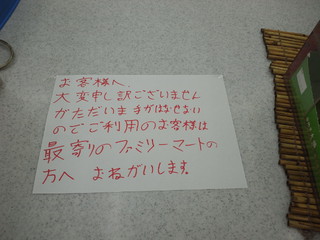 お客様へ
大変申し訳ございません
がただいま手がはなせない
のでご利用のお客様は
最寄りのファミリーマートの
方へ おねがいします。